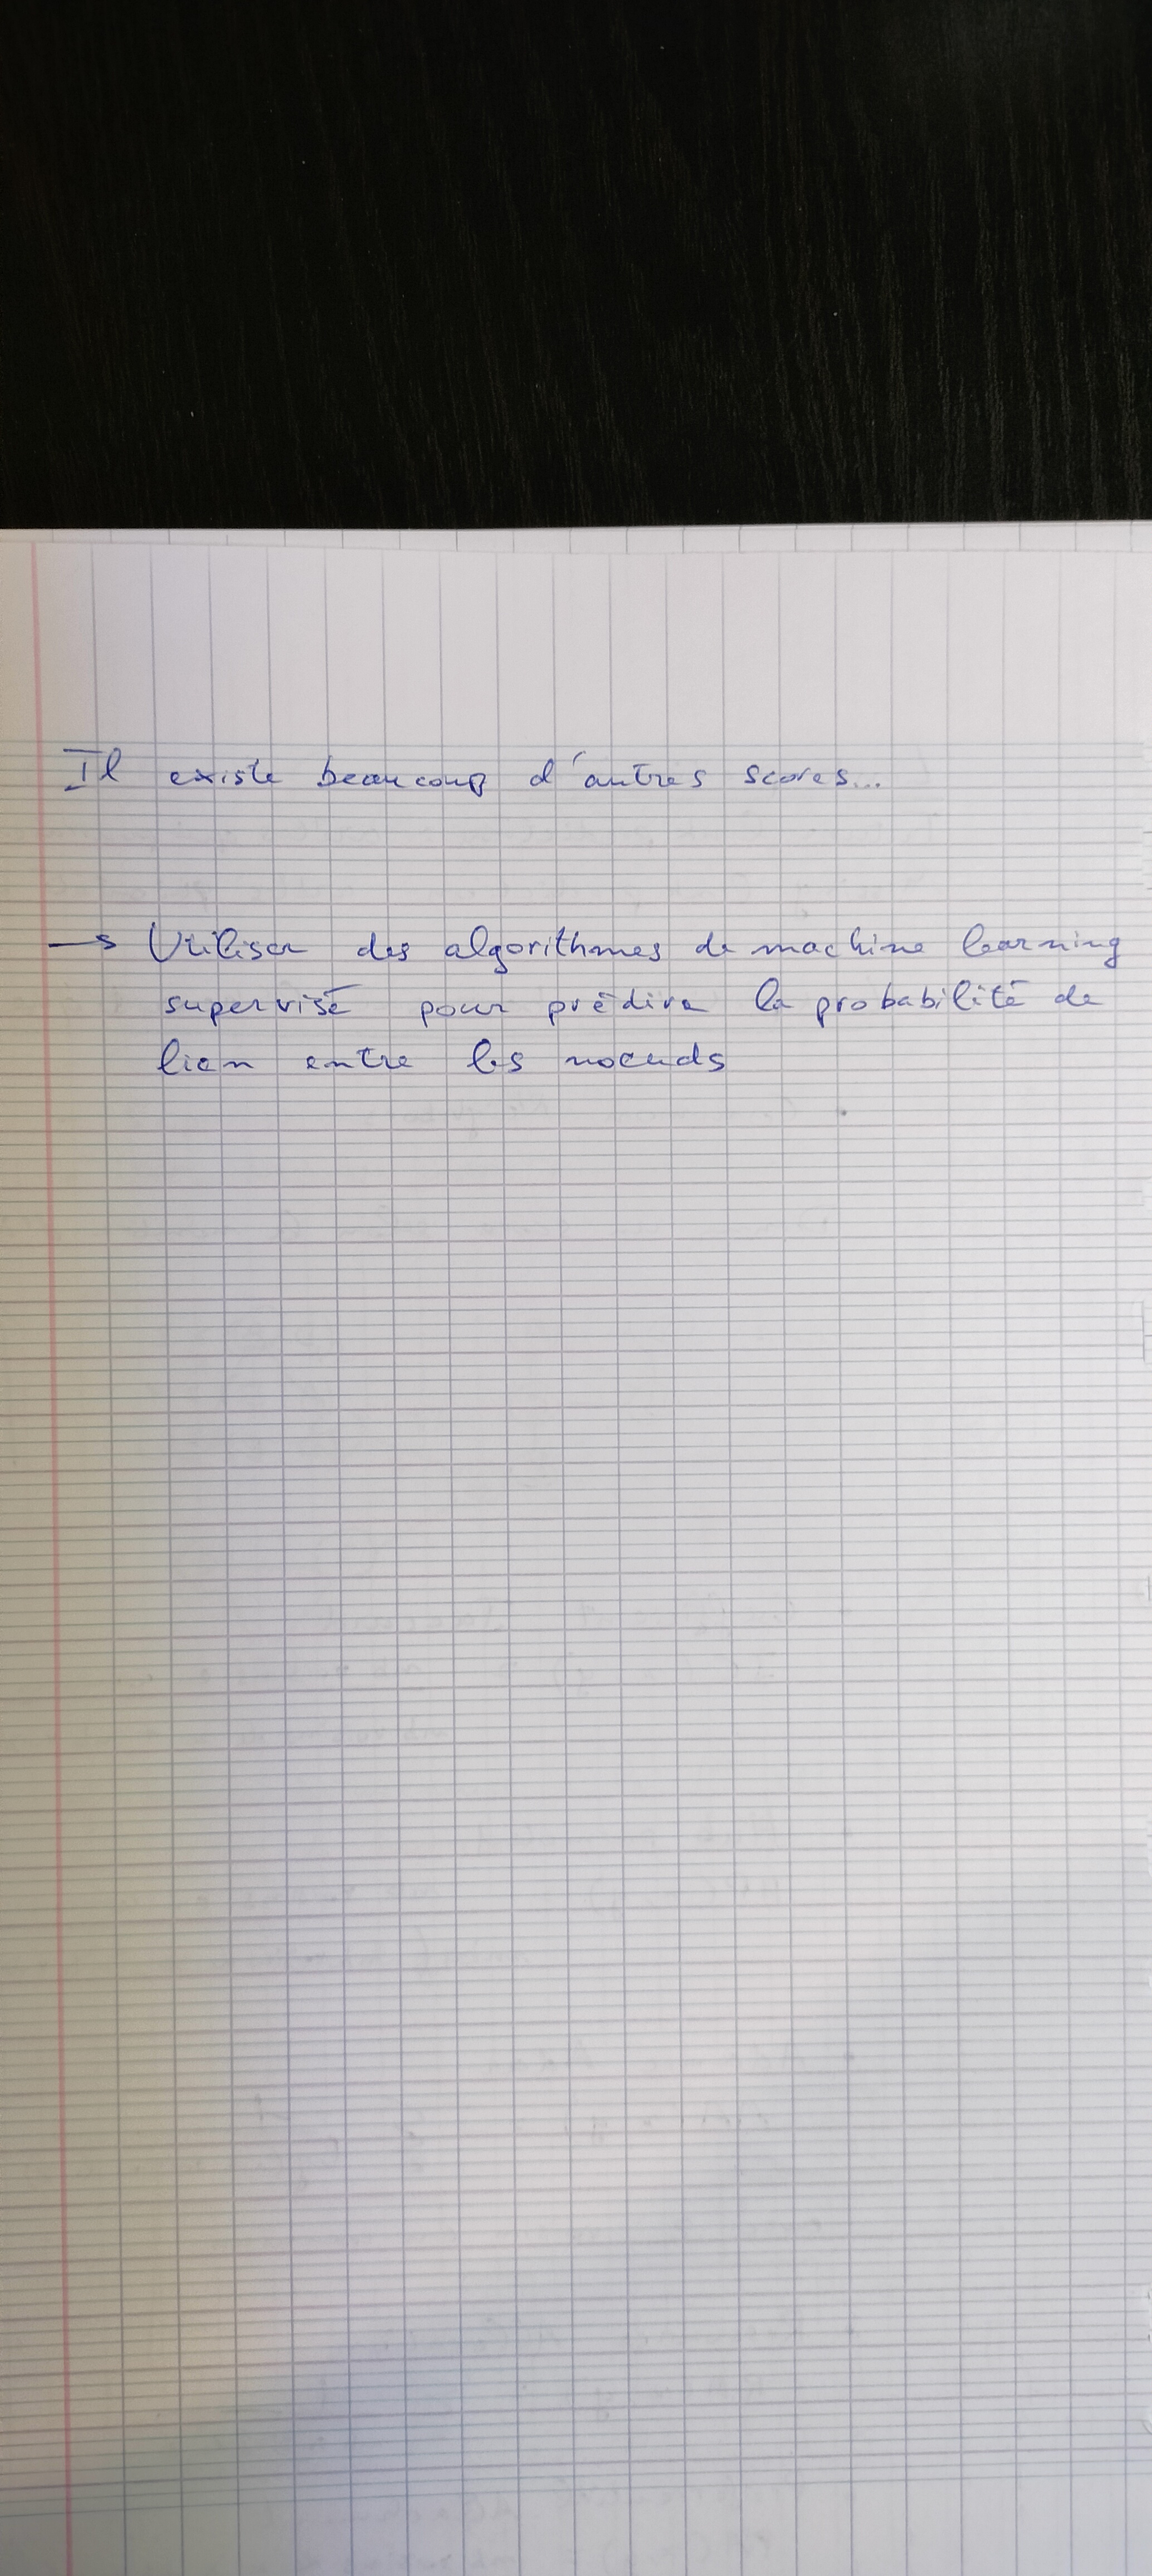 Il existe beaucoup d'autres scores...
→ Utiliser des algorithmes de machine learning
supervisé pour prédire la probabilité de
lien entre les noeuds